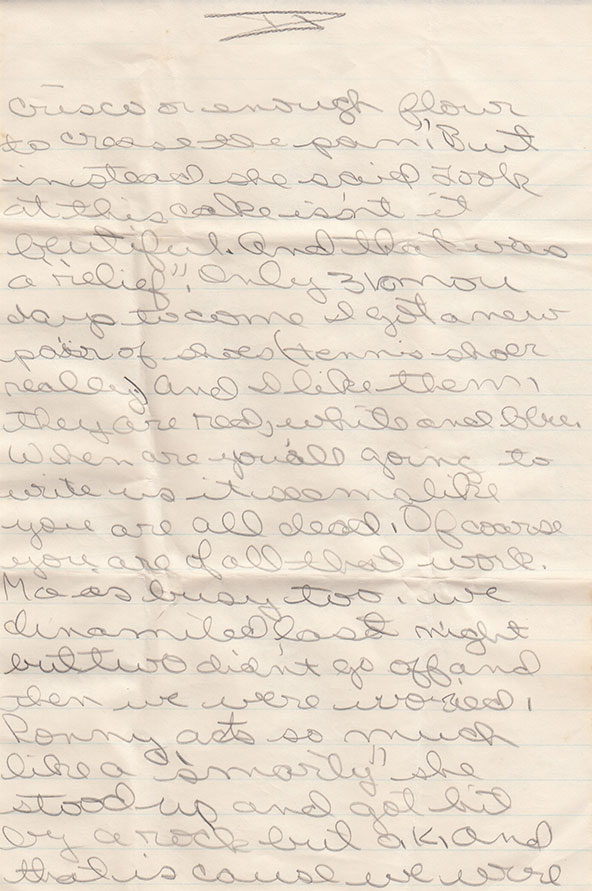 II
crisco or enough flour
to crease the pan". But
instead she said look
at this cake isn't it
beutiful. And that was
a "relief". Only 31 mou
days to come I got a new
pair of shoes (tennis shoes
really) and I like them,
they are red, white and blue.
When are you'all going to
write us it seems like
you are all dead. Of coarse
you are of all that work.
Ma as busy too. we
dinamited last night
but two didn't go off and
then we were woried,
Ronny acts so much
like a "smarty" she
stood up and got hit
by a rock but o,k, and
that is cause we were